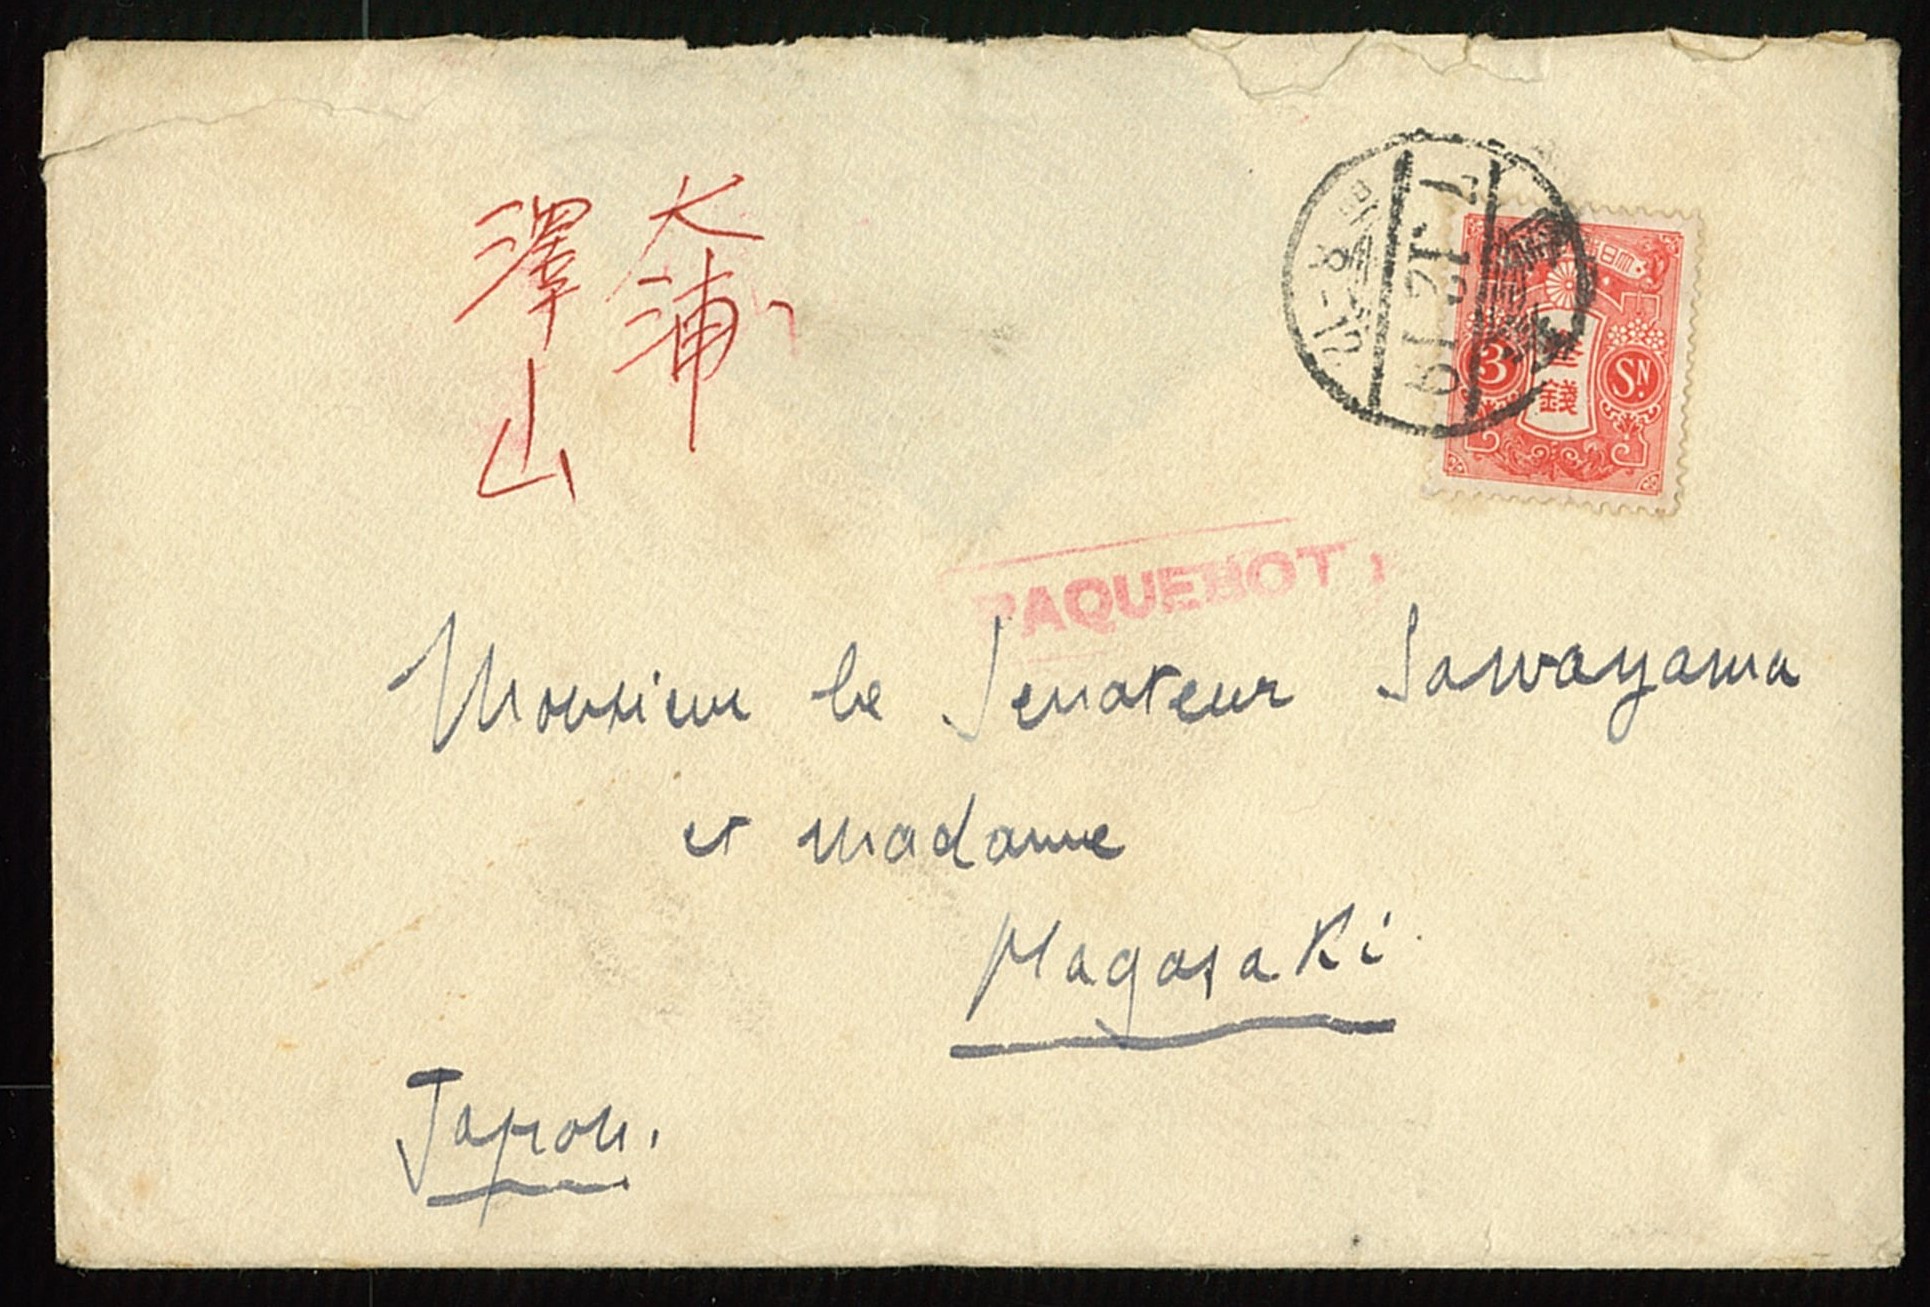 大浦
澤山
7.12.19
3
SN
錢
PAQUEBOT
Monsieur le Senateur Sawayama
et madame
Nagasaki
Japon.